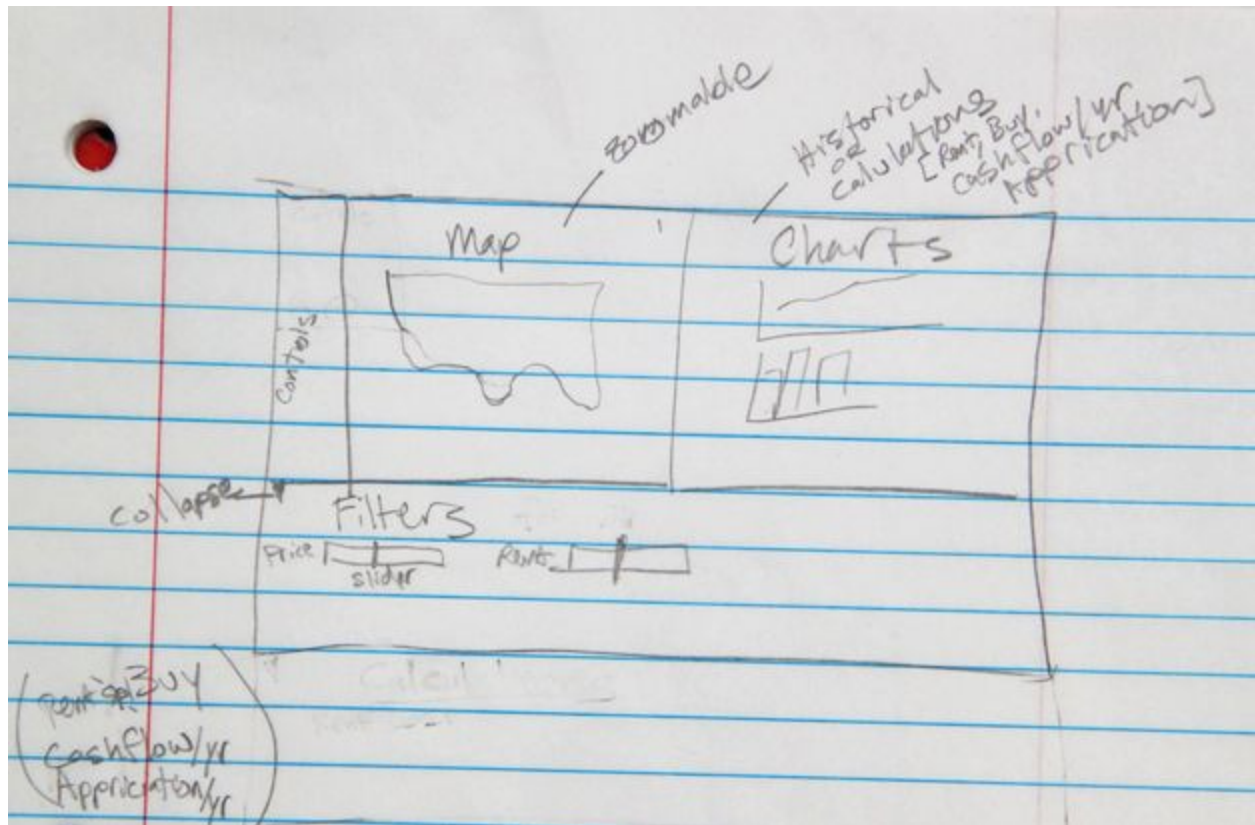 zoomable
Historical
or
Calculations
[Rent, Buy,
Cashflow/yr
Apprication]
Map
Charts
Controls
Collapse
Filters
Price
slider
Rent
Buy
Cashflow/yr
Appriciation/yr